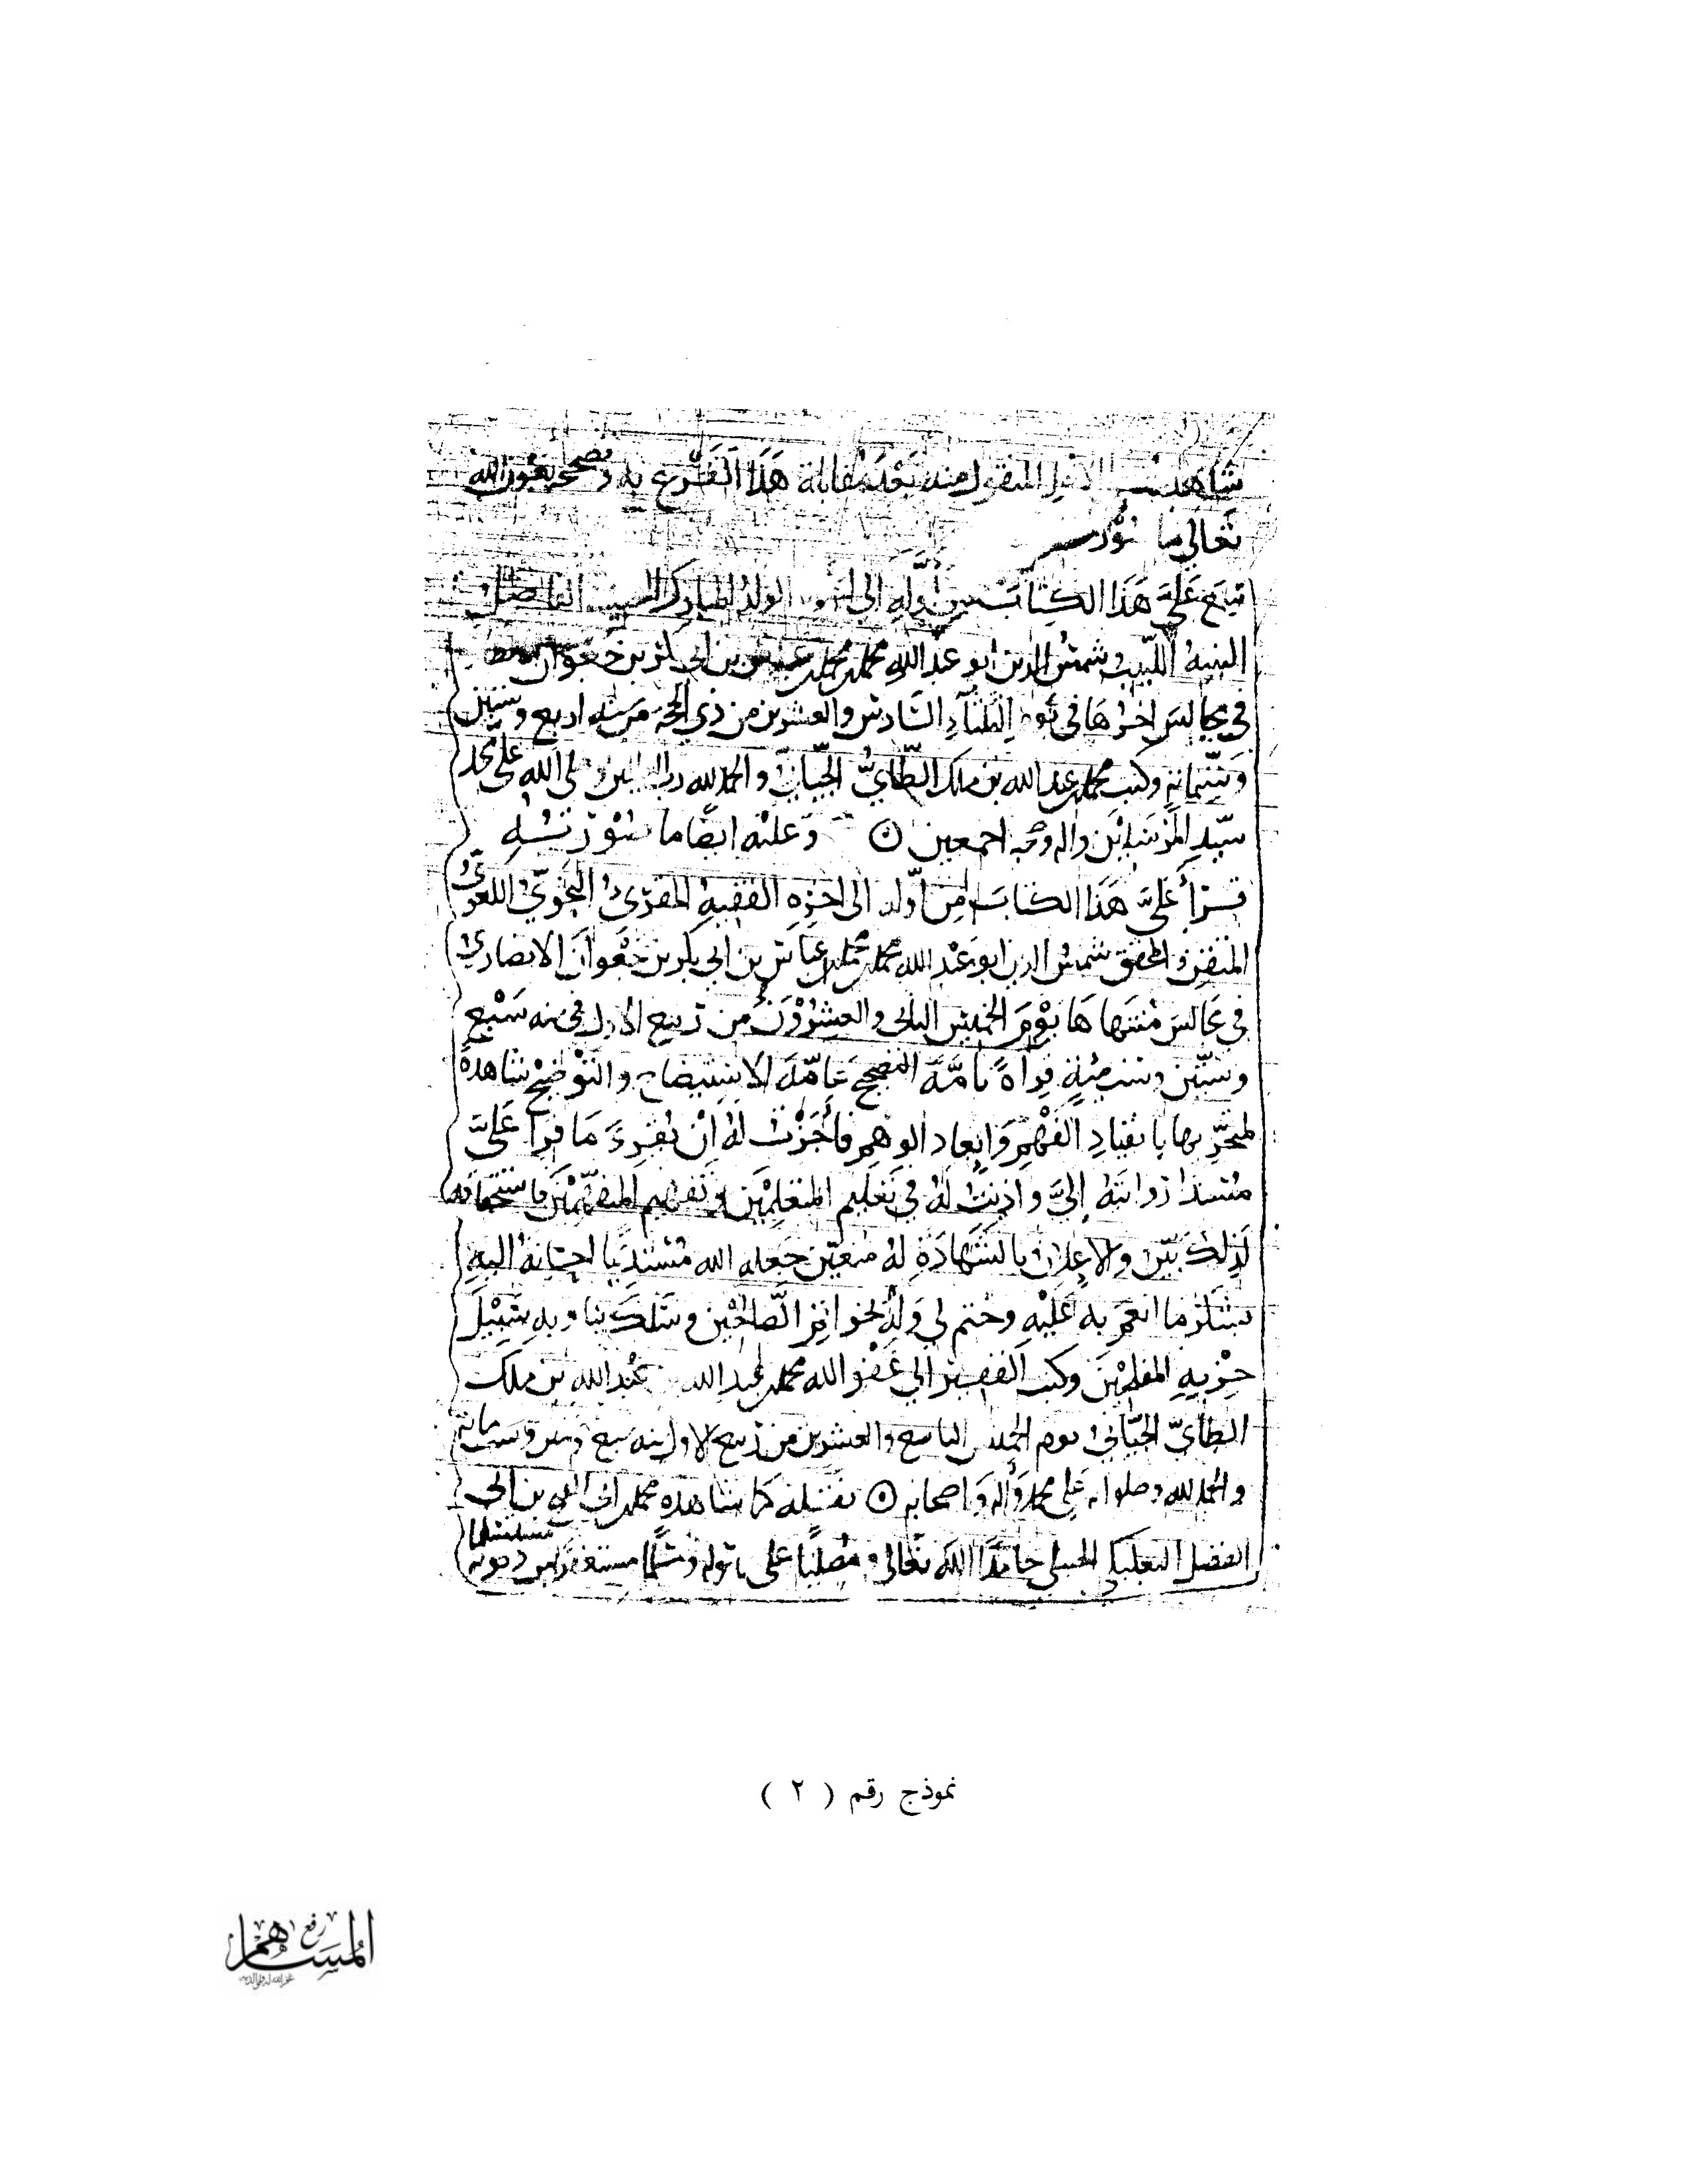 شاهدت الاصل المنقول منه بعد مقابلة هَذَا الفَرْع به وتصحيحه بعون الله
تعالى ما صُوْرته
سَمِعَ عَلَيَّ هَذَا الكِتَابَ من أوَّلِهِ إلى آخره الولد المبارك الفاضل
النبيهُ اللبيبُ شمسُ الدين ابو عبد الله محمد بن محمد بن عباس بن ابي بكر بن جَعْوان
في مجالسَ اخرُهَا في يوم الثلثاءِ السَّادسِ والعشرين من ذي الحجة من سنة اربع وستين
وَستّمائة وكتب محمد بن عبد الله بن ملك الطَّائيُّ الجيَّانيُّ والحمد لله رب العالمين وصلى الله على محمد
سيّدِ المرسَلِيْن واله وصحبه اجمعين ۞ وَعليْه ايضًا ما صُوْرَتُه
قَرَأَ عَلَيَّ هَذَا الكتابَ مِن أوَّله الى اخِرِهِ الفقيهُ المقرئُ النحَوِيُّ اللغويُّ
المتقن المحقق شمسُ الدين ابو عبْد الله محمد بن محمد بن عباس بن ابي بكر بن جَعْوَانَ الانصاريُّ
في مجالسَ مُنتهاهَا يَوْمَ الخميسِ والعشرُوْنَ من ربيع الاول في سنه سَبْعٍ
وستّين وستمئةٍ قراءةً تامَّةَ التصحيح عَامّةَ الاستيضاح والتَّوضيْح شاهدةً
لمتحرِّيها بانقيادِ الفَهْمِ وَابعاد الوهم فأجَزْتُ لهُ أنْ يُقرِئَ مَا قرأ عَلَيَّ
مُسندا روايتَهُ إليَّ واذِنتُ لهُ في تَعليم المتعلِمْين وتفهيم المتفهّمْين فاستحقاقه
لَذِلكَ بيّن والاعلان بالشَّهَادَةِ لهُ متعيّن جَعله الله مُسْتديمًا احسَانهُ اليهِ
بشكر ما انعم به عَلَيْهِ وختم لي وَلهُ بخواتم الصَّالحيْن وسَلك بنا وبه سَبِيْلَ
حِزْبِهِ المفلحِيْنَ وكتب الفقير الى عَفْو الله محمد بن عبد الله بن عبْد الله بن ملك
الطائيّ الجيّانيُّ يوم الخميس التاسع والعشرين من ربيع الاول سنه سبع وستين وستمائة
والحمد لله وصلواته عَلى محمد وآله وَاصحابه ۞ نقله كما شاهده محمد بن ابي الفتح بن ابي
الفضل البعلبكي الحنبلي حامدًا الله تعالى ومُصلّيًا على رسوله ومسلّمًا مستغفرا من ذنوبه
نموذج رقم ( ٢ )
رفع
المساهم
غفر الله له ولوالديه